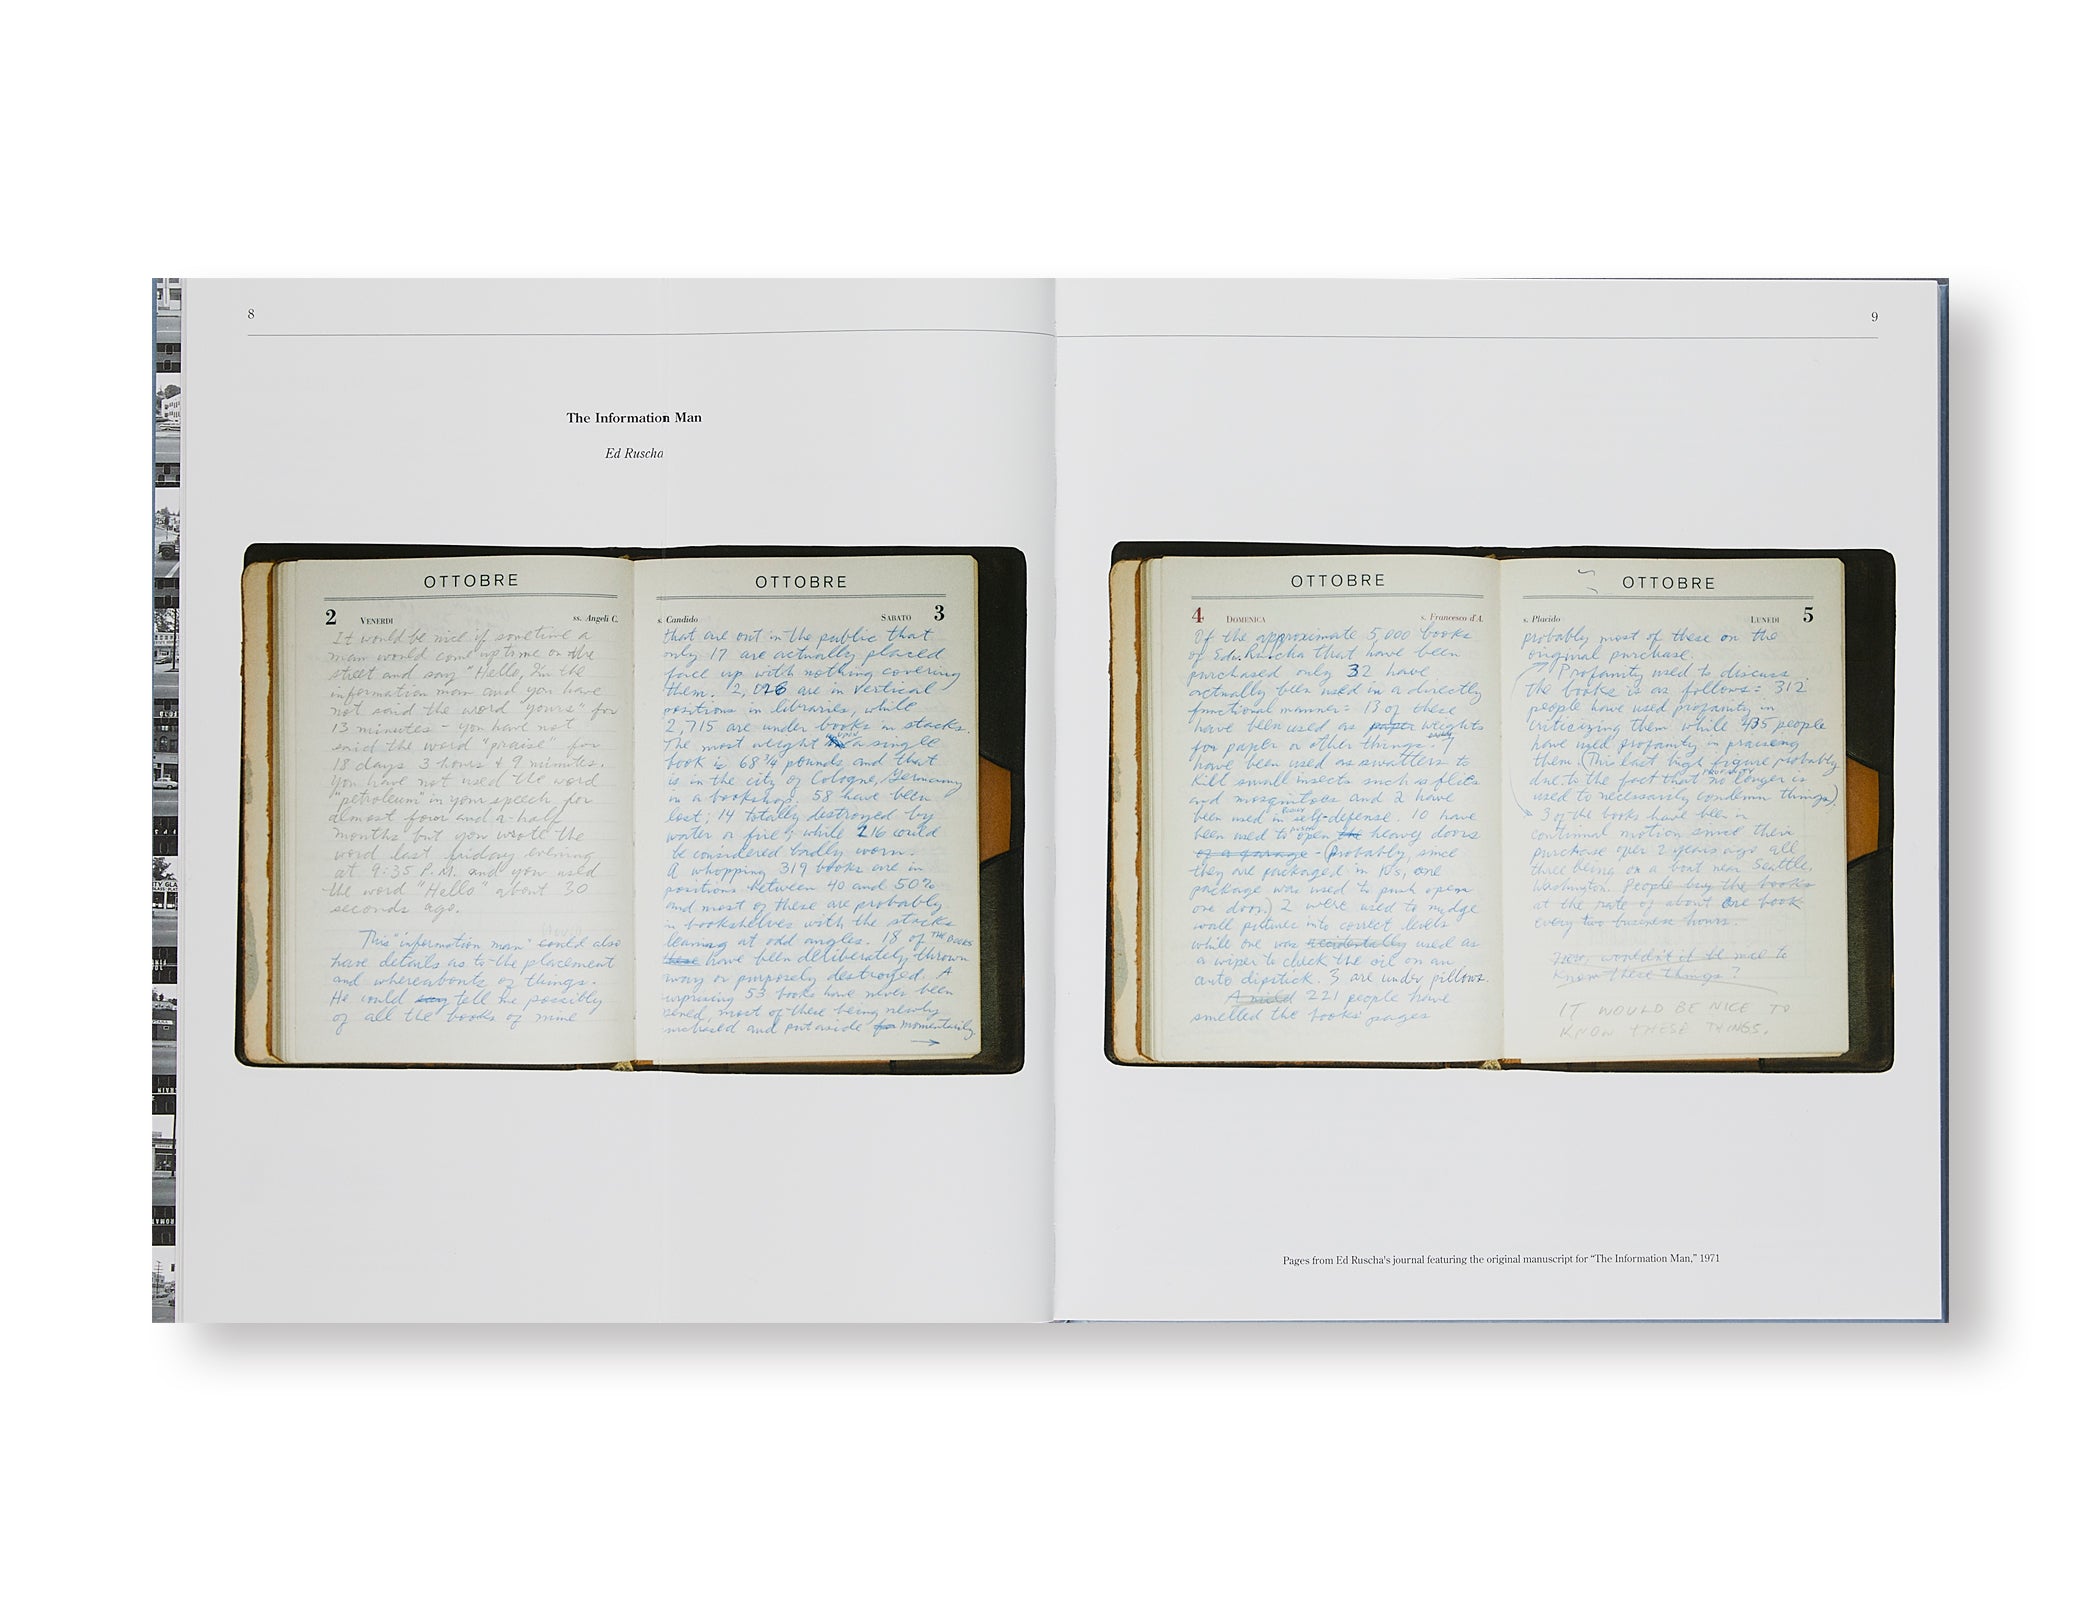 8
The Information Man
Ed Ruscha
OTTOBRE
2 VENERDI ss. Angeli C.
It would be nice if sometime a
man would come up to me on the
street and say "Hello, I'm the
information man and you have
not said the word "yours" for
13 minutes - you have not
said the word "praise" for
18 days 3 hours & 9 minutes.
You have not used the word
"petroleum" in your speech for
almost four and a-half
months but you wrote the
word last friday evening
at 9:35 P.M. and you used
the word "Hello" about 30
seconds ago.
This "information man" could also
have details as to the placement
and whereabouts of things.
He could say tell me possibly
of all the books of mine
OTTOBRE
s. Candido SABATO 3
that are out in the public that
only 17 are actually placed
face up with nothing covering
them. 2,026 are in vertical
positions in libraries, while
2,715 are under books in stacks.
The most weight on a single
book is 68 3/4 pounds, and that
is in the city of Cologne, Germany
in a bookshop. 58 have been
lost; 14 totally destroyed by
water or fire; while 216 could
be considered badly worn.
A whopping 319 books are in
positions between 40 and 50%
and most of these are probably
in bookshelves with the stacks
leaning at odd angles. 18 of THE BOOKS
these have been deliberately thrown
away or purposely destroyed. A
surprising 53 books have never been
opened, most of these being newly
purchased and put aside for momentarily
→
9
OTTOBRE
4 DOMENICA s. Francesco d'A.
Of the approximate 5,000 books
of Edw. Ruscha that have been
purchased only 32 have
actually been used in a directly
functional manner: 13 of these
have been used as paper weights
for paper or other things. 7
have been used as swatters to
kill small insects such as flies
and mosquitoes and 2 have
been used in self-defense. 10 have
been used to push open the heavy doors
of a garage - (Probably, since
they are packaged in 10's, one
package was used to push open
one door.) 2 were used to nudge
wall pictures into correct levels
while one was accidentally used as
a wiper to check the oil on an
auto dipstick. 3 are under pillows.
A mild 221 people have
smelled the books' pages
OTTOBRE
s. Placido LUNEDI 5
probably most of these on the
original purchase.
Profanity used to discuss
the books is as follows: 312
people have used profanity in
criticizing them while 435 people
have used profanity in praising
them. (This last high figure probably
due to the fact that PROFANITY no longer is
used to necessarily condemn things)
3 of the books have been in
continual motion since their
purchase over 2 years ago all
three being on a boat near Seattle,
Washington. People buy the books
at the rate of about one book
every two business hours.
wouldn't it be nice to
know these things?
IT WOULD BE NICE TO
KNOW THESE THINGS.
Pages from Ed Ruscha's journal featuring the original manuscript for "The Information Man," 1971